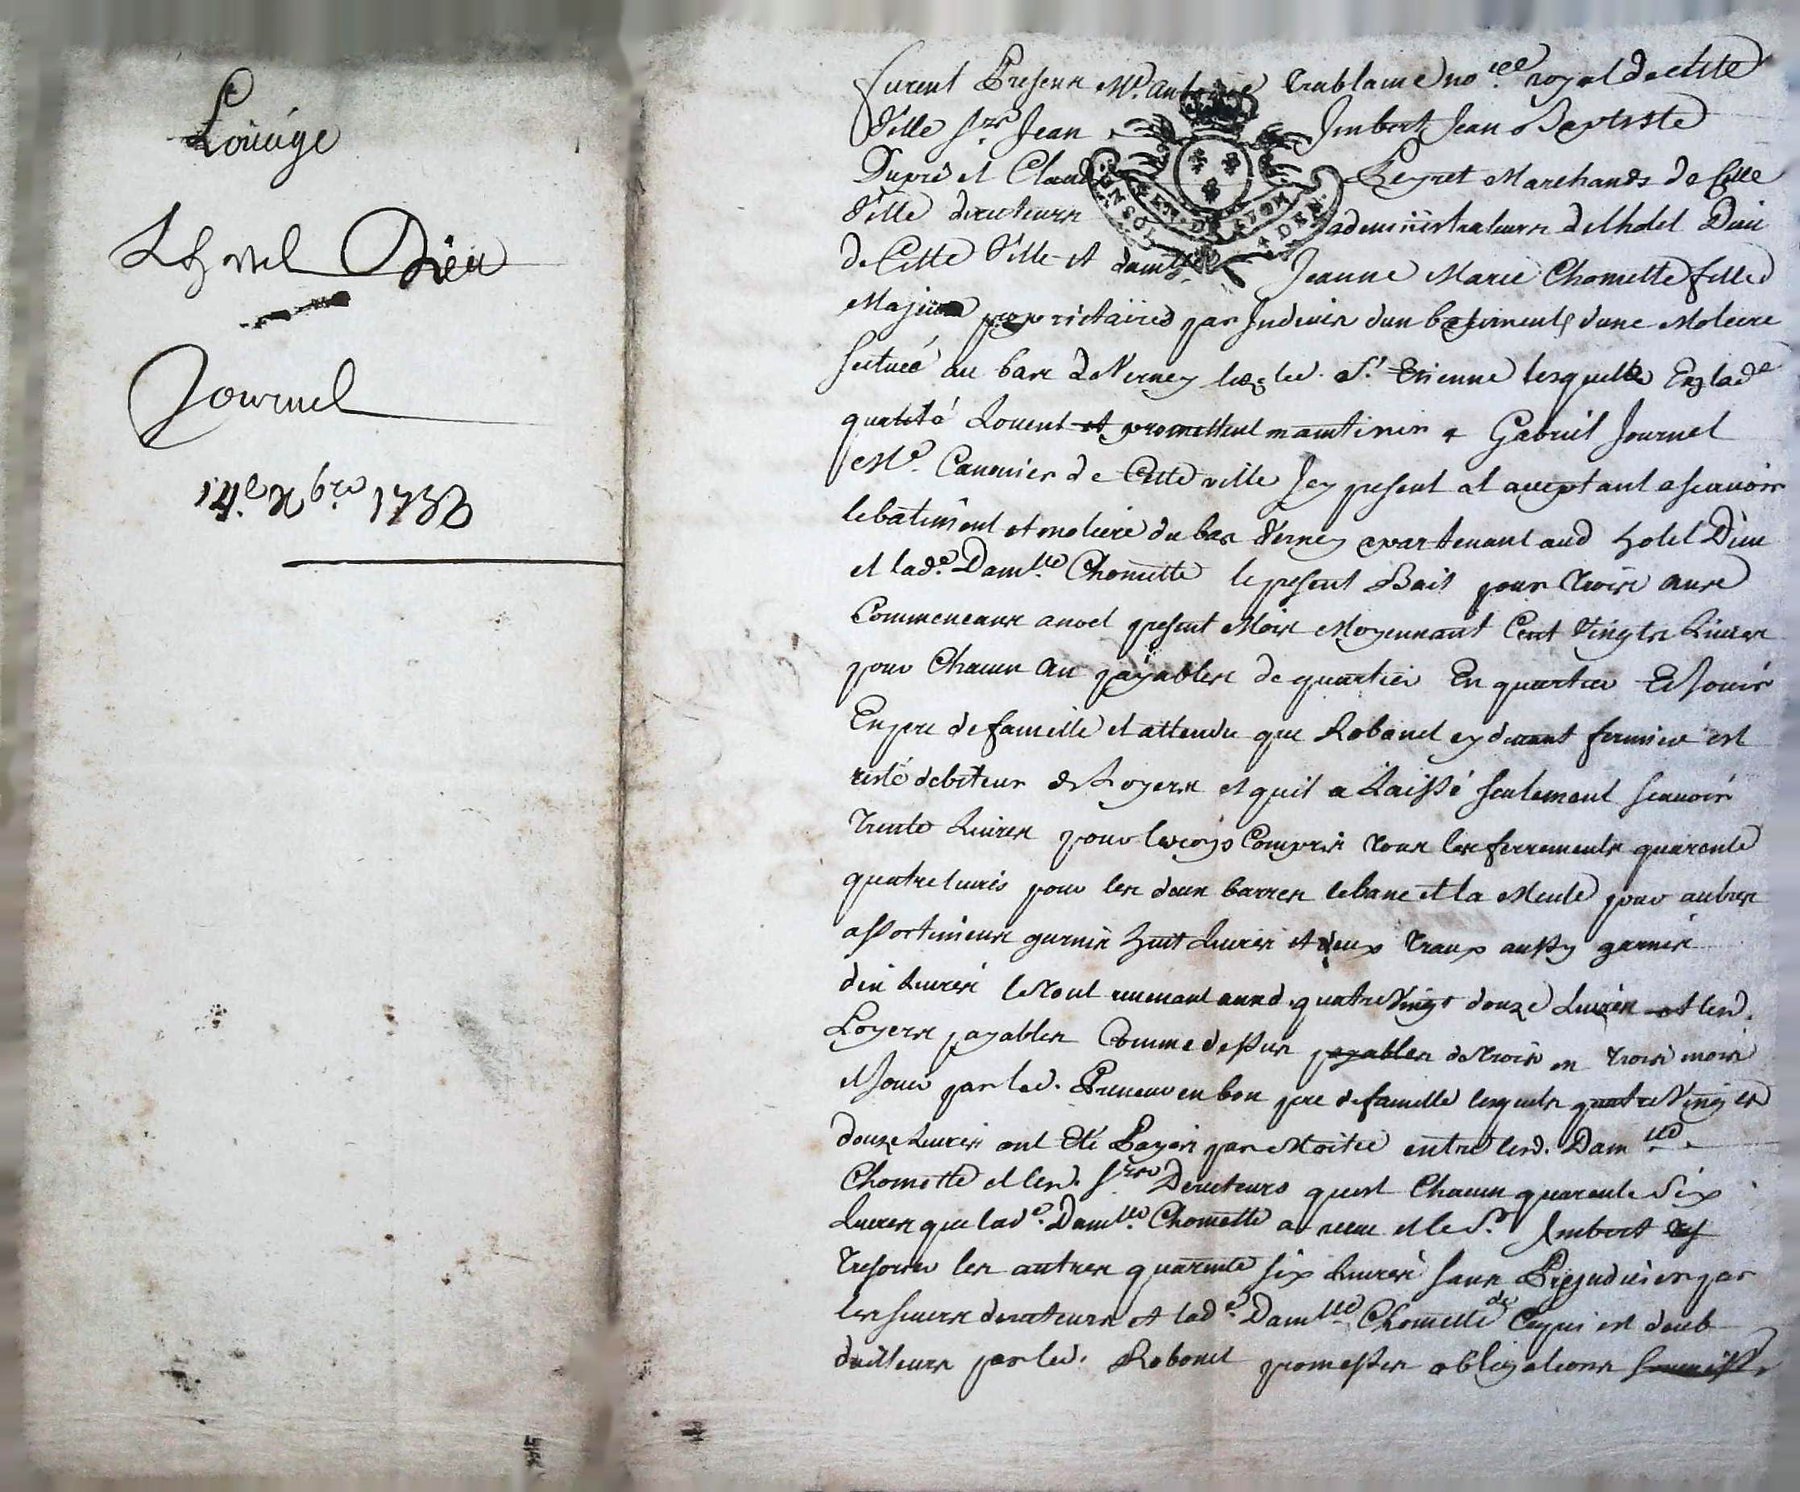 Louage
Lhotel Dieu
Journel
14e xbre 1738
furent Presens Me. antoine Trablaine no.re royal de cette
Ville srs Jean Imbert Jean Baptiste
Dupré et Claude Peyret Marchands de Cette
Ville directeurs administrateurs delhotel Dieu
de Cette Ville et damlle Jeanne Marie Chomette fille
Majeure propriétaires par Indivis dun batiment dune Moliere
scituée au bas de Verney les St. Etienne lesquels En lade
qualité Louent et promettent maintenir a Gabriel Journel
Me. Canonier de Cette ville Icy present et acceptant ascavoir
lebatiment et moliere du bas Verney apartenant aud hotel Dieu
et lade. Damlle Chomette le present Bail pour trois ans
Commencans anoel present Mois Moyennant Cent Vingts Livres
pour Chacun an payables de quartier En quartier Et Jouir
En pere defamille et attendu que Robanel cy devant fermier est
resté debiteur de Loyers et quil a Laissé seulement scavoir
trente Livres pour le Compris tous les ferrements quarente
quatre livres pour les deux barres lebanc et la Meule pour autres
assortimens garnis huit Livres et deux traux aussy garnis
dix Livres le tout revenant aund. quatre Vingt douze Livres et les d.
Loyers payables Comme dessus payables de trois en trois mois
et Jouir par led. Preneur en bon pere defamille lesquels quatre Vingts
douze Livres ont Eté Payés par Moitié entre lesd. Damlle.
Chomette et lesd. srs Directeurs quest Chacun quarente Six
Livres que lade. Damlle. Chomette a receu et le Sr. Imbert
Tresorier les autres quarente six Livres sans Prejudicier par
les sieurs directeurs et lade. Damlle Chomette de Ce qui est deub
dailleurs par led. Robanel promesses obligations